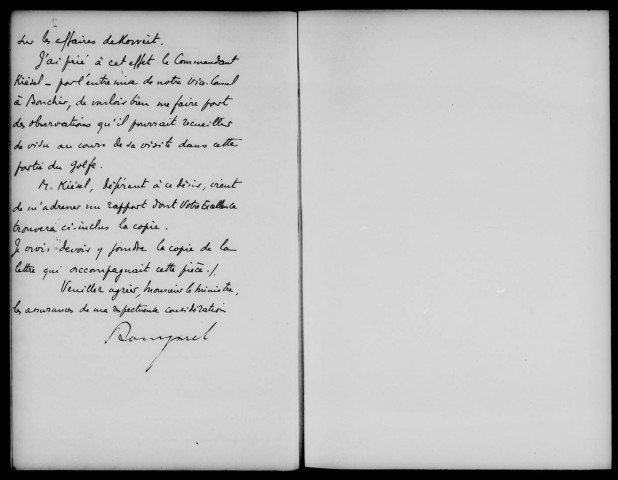 sur les affaires de Koweit.
J'ai prié à cet effet le Commandant
Kiésel - par l'entremise de notre Vice-Consul
à Bouchir, de vouloir bien me faire part
des observations qu'il pourrait recueillir
de visu au cours de sa visite dans cette
partie du Golfe.
M. Kiésel, déférant à ce désir, vient
de m'adresser un rapport dont Votre Excellence
trouvera ci-inclus la copie.
Je crois devoir y joindre la copie de la
lettre qui accompagnait cette pièce./.
Veuillez agréer, Monsieur le Ministre,
les assurances de ma respectueuse considération